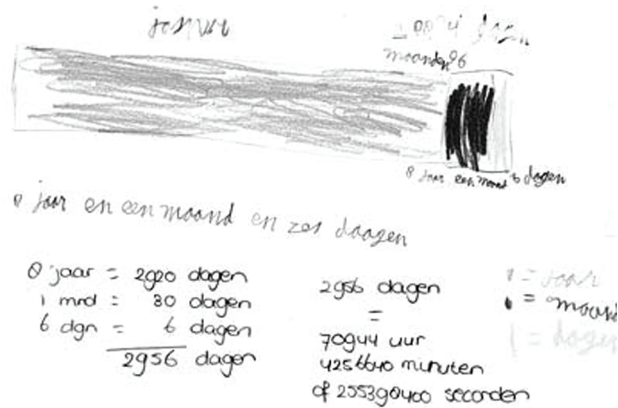 maanden 96
8 jaar een maand 6 dagen
8 jaar en een maand en zes daagen
8 jaar = 2920 dagen
1 mnd = 30 dagen
6 dgn = 6 dagen
2956 dagen
2956 dagen
=
70944 uur
4256640 minuten
of 255398400 seconden
= jaar
= maand
= dagen